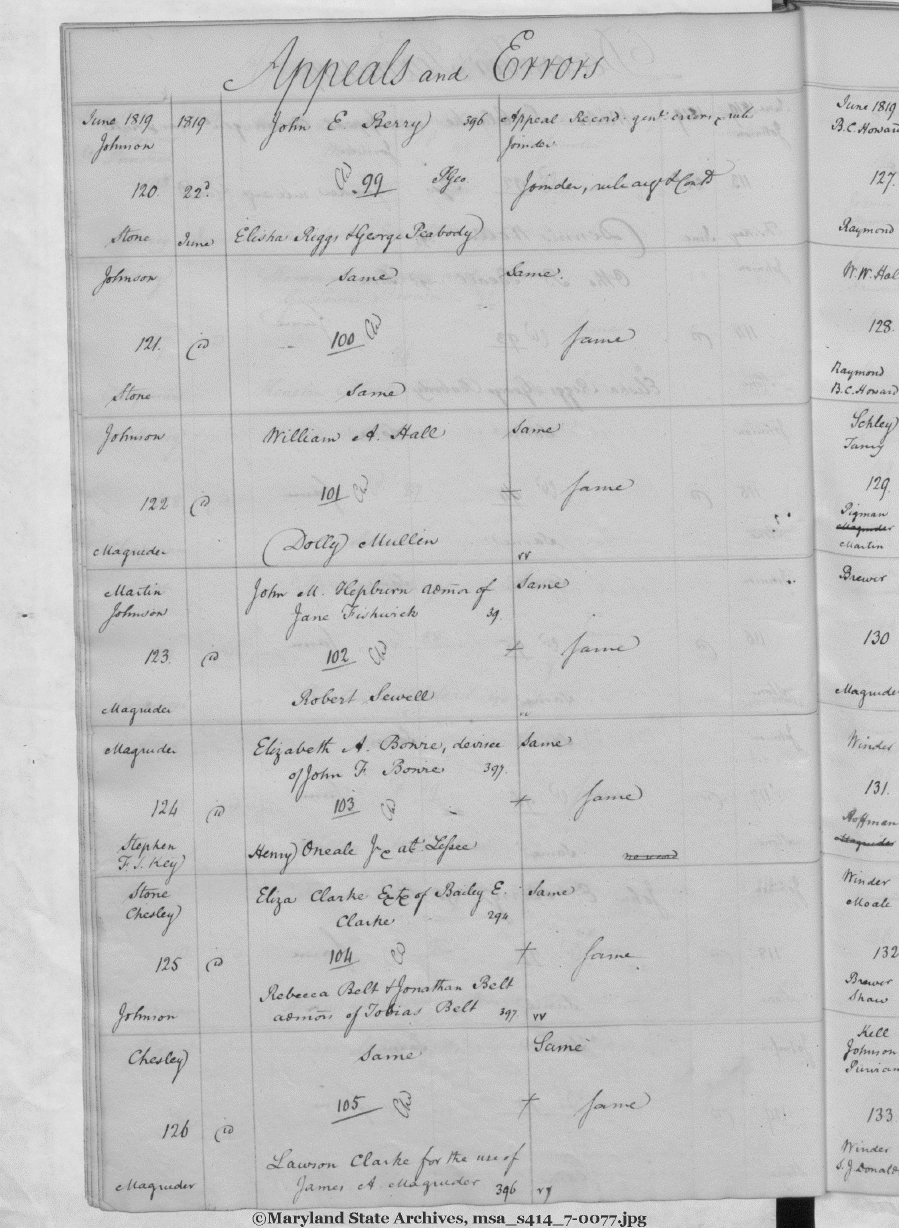 Appeals and Errors
June 1819 1819 John E. Berry 396 Appeal Record gent errors, rule
Johnson Joinder
120 22d 99 Joinder, rule
Stone June Elisha Riggs & George Peabody
Johnson same Same.
121. 100 Same
Stone same
Johnson William A. Hall Same
122 101 + Same
Magruder Dolly Mullin vv
Martin John M. Hepburn admor of Same
Johnson Jane Fishwick 39
123. 102 + Same
Magruder Robert Sewell
Magruder Elizabeth A. Bowre, devisee Same
of John F Bowre 397.
124 103 + Same
Stephen Henry Oneale Jr at Lessee
F. S. Key
Stone Eliza Clarke Extx of Bailey E. Same
Chesley Clarke 294
125 104 + Same
Rebecca Belt & Jonathan Belt
Johnson admors of Tobias Belt 397 vv
Chesley Same Same
105 + Same
126
Lawson Clarke for the use of
Magruder James A. Magruder 396
June 1819
B.C. Howard
127.
Raymond
W. W. Hal
128.
Raymond
B.C. Howard
Schley
Taney
129.
Pigman
Magruder
Martin
Brewer
130
Magruder
Winder
131.
Hoffman
Magruder
Winder
Moale
132
Brewer
Shaw
Kell
Johnson
Purvian
133
Winder
S. J Donald
©Maryland State Archives, msa_s414_7-0077.jpg